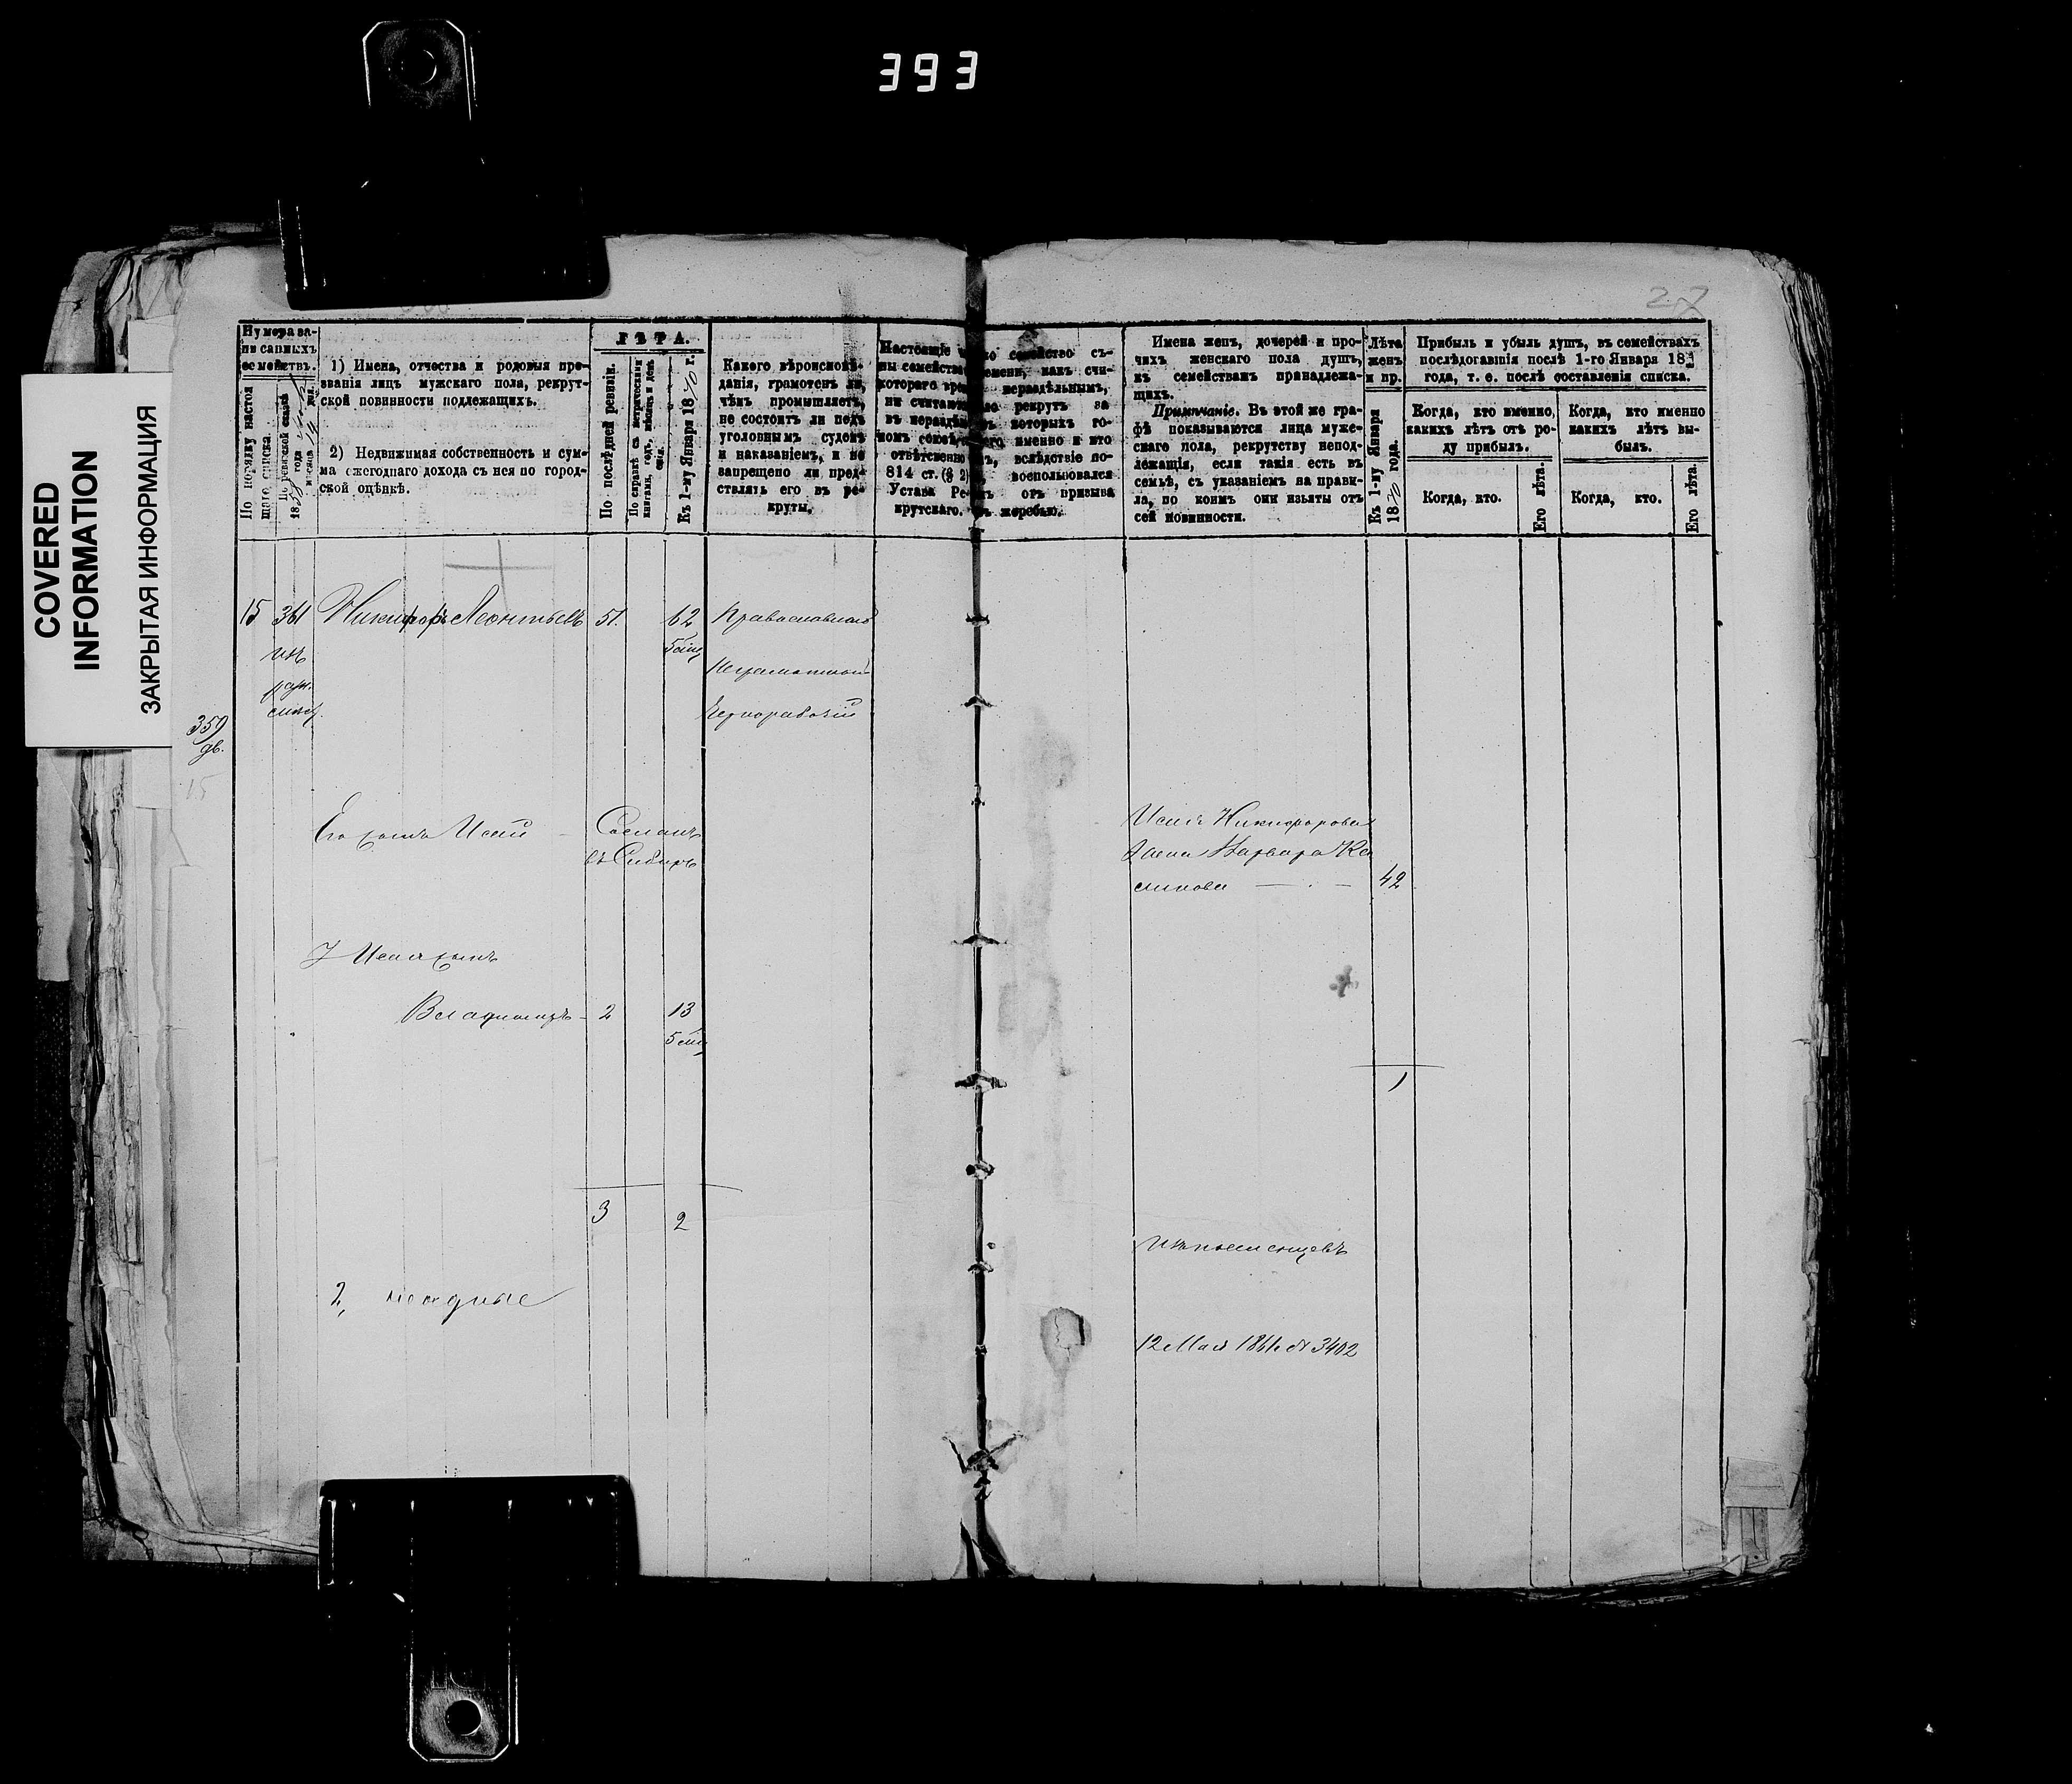 393
27
COVERED
INFORMATION
ЗАКРЫТАЯ ИНФОРМАЦИЯ
Нумера за-
писанныхъ
семействъ.
По порядку настоя
щаго списка.
По ревизской сказкѣ
1858 года
мѣсяца 14 дня.
1) Имена, отчества и родовыя про-
званія лицъ мужскаго пола, рекрут-
ской повинности подлежащихъ.
2) Недвижимая собственность и сум-
ма ежегоднаго дохода съ нея по город-
ской оцѣнкѣ.
ЛѢТА.
По послѣдней ревизіи.
По справкѣ съ метрическими
книгами, годъ, мѣсяцъ и день
Къ 1-му Января 1870 г.
Какого вѣроисповѣ-
данія, грамотенъ ли,
чѣмъ промышляетъ,
не состоитъ ли подъ
уголовнымъ судомъ
и наказаніемъ, и не
запрещено ли пред-
ставлять его въ ре-
круты.
Настоящіе семейство съ-
котораго нераздѣльнымъ,
рекрутъ за
которыхъ го-
именно и кто
вслѣдствіе по-
814 ст. (§ 2) воспользовался
Устава отъ призыва
крутскаго. жеребью.
Имена женъ, дочерей и про-
чихъ женскаго пола душъ,
къ семействамъ принадлежа-
щихъ.
Примѣчаніе. Въ этой же гра-
фѣ показываются лица муже-
скаго пола, рекрутству непод-
лежащія, если такія есть въ
семьѣ, съ указаніемъ на прави-
ла, по коимъ они изъяты отъ
сей повинности.
Лѣта
женъ
и пр.
Къ 1-му Января
1870 года.
Прибыль и убыль душъ, въ семействахъ
послѣдовавшія послѣ 1-го Января 18
года, т. е. послѣ составленія списка.
Когда, кто именно,
какихъ лѣтъ отъ ро-
ду прибылъ.
Когда, кто именно
какихъ лѣтъ вы-
былъ.
Когда, кто.
Его лѣта.
Когда, кто.
Его лѣта.
15 361 Никифоръ Леонтьевъ 51. 62 Православнаго
изъ
Неграмотный
Чернорабочій
359
дв.
15
Его сынъ Исай – Сосланъ
въ Сибирь
Исая Никифорова
жена Варвара
42
У Исая сынъ
Владимиръ – 2 13
1
3 2
12 Мая 1861 г. № 3402